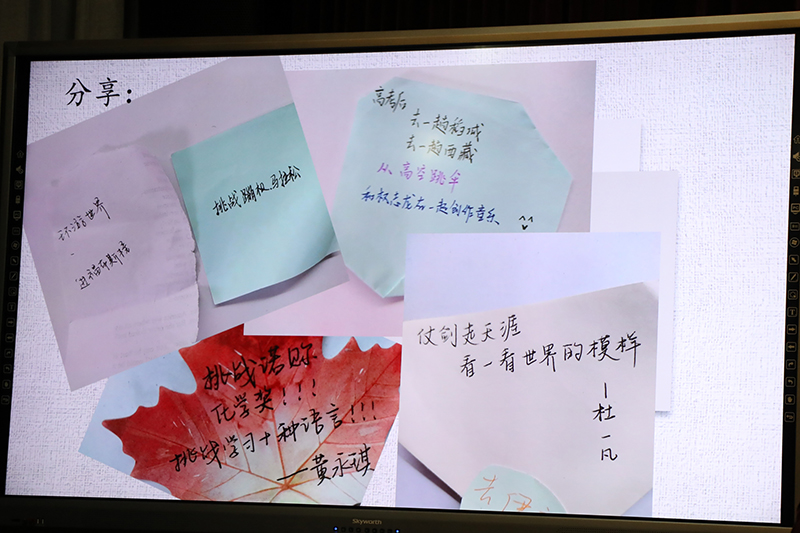 分享：
环游世界
进福布斯榜
挑战蹦极、马拉松
高考后
去一趟稻城
去一趟西藏
从高空跳伞
和权志龙在一起创作音乐
挑战诺贝尔
化学奖！！！
挑战学习十种语言！！！
——黄永琪
仗剑走天涯
看一看世界的模样
—杜一凡
去
Skyworth